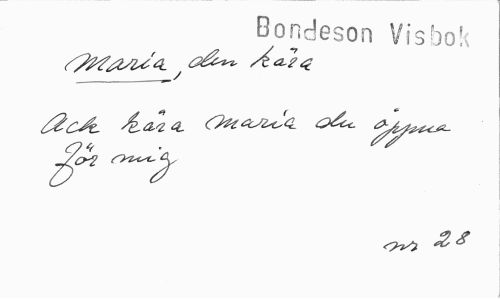 Bondeson Visbok
Maria, den kära
Ack kära Maria du öppna
för mig
nr 28